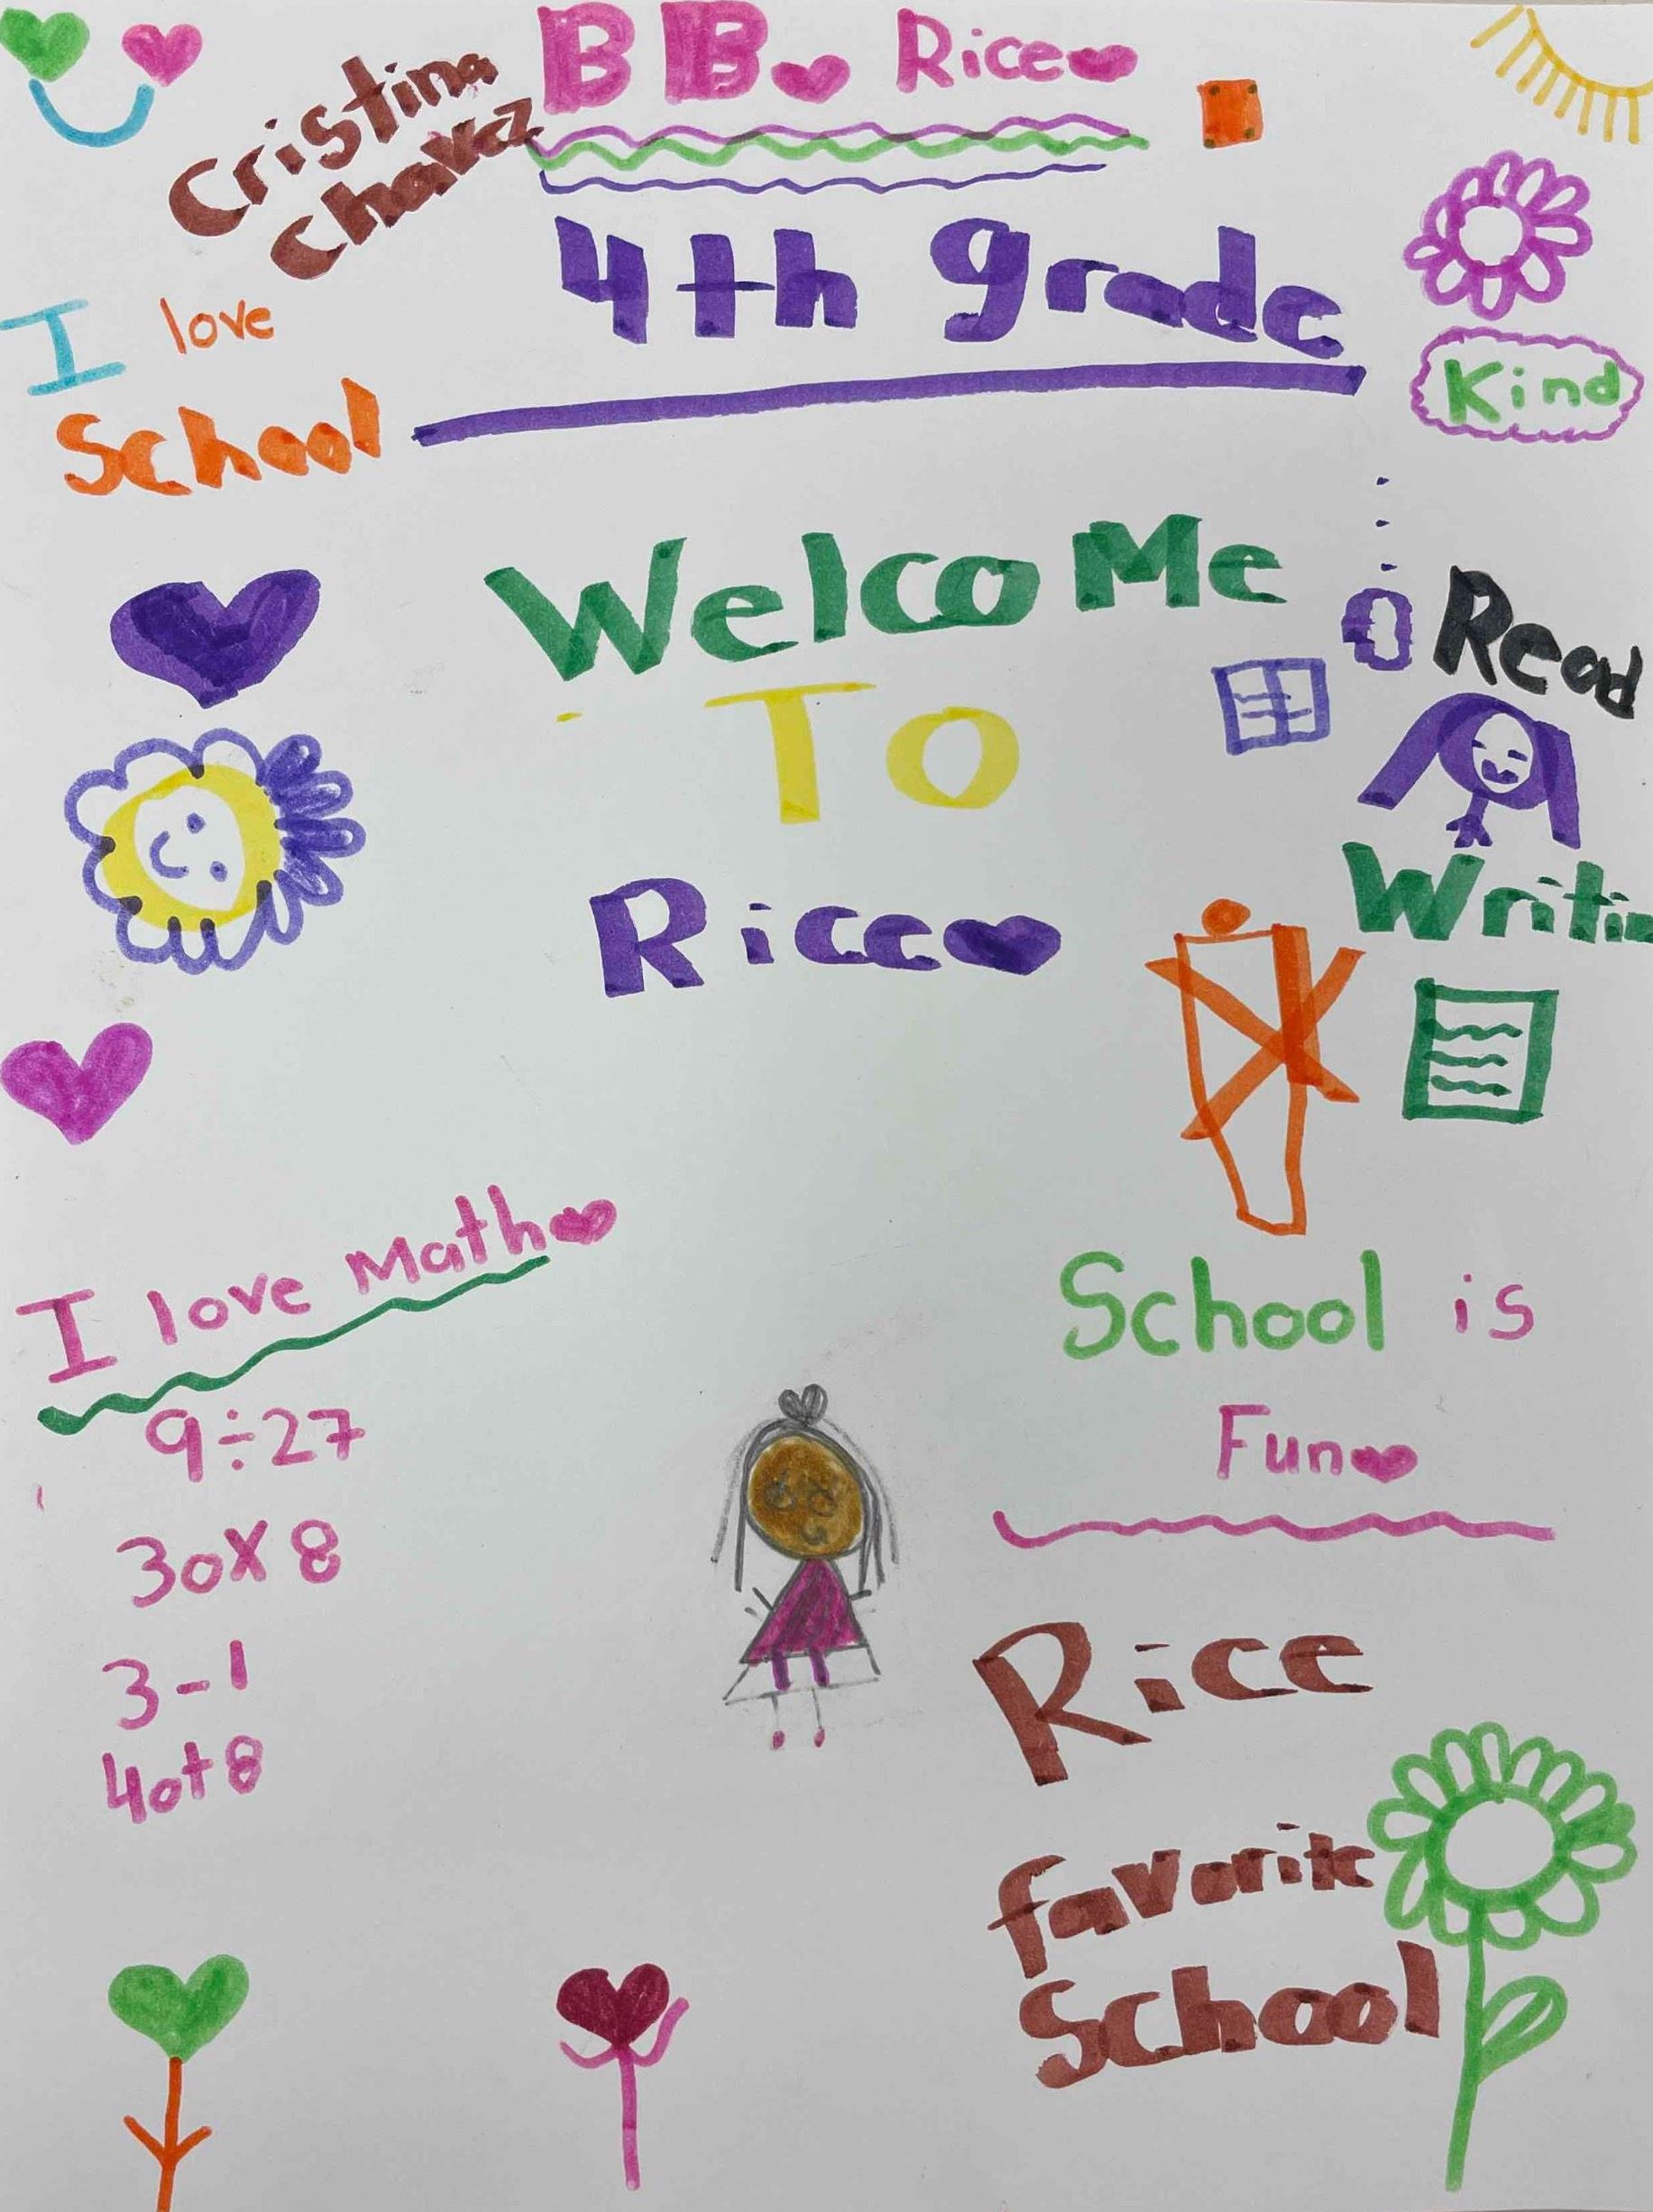 BB Rice
Cristina
Chavez
4th grade
I love
School
Kind
Welcome
To
Rice
Read
Writin
I love Math
9÷27
30x8
3-1
40+8
School is
Fun
Rice
favorite
School